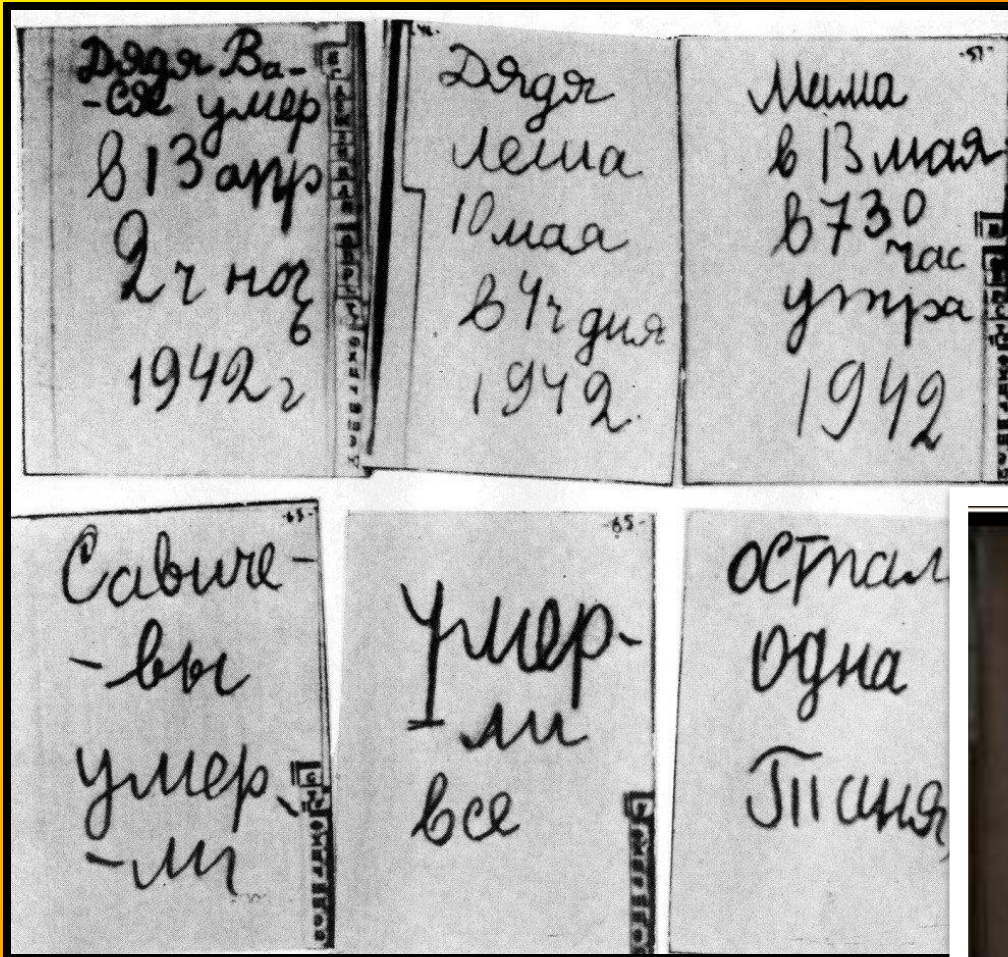 Дядя Ва-
-ся умер
в 13 апр
2 ч ночь
1942 г
Дядя
Леша
10 мая
в 4 ч дня
1942
Мама
в 13 мая
в 7 30
час
утра
1942
Савиче-
-вы
умер
-ли
-65-
Умер-
-ли
все
остал
одна
Таня